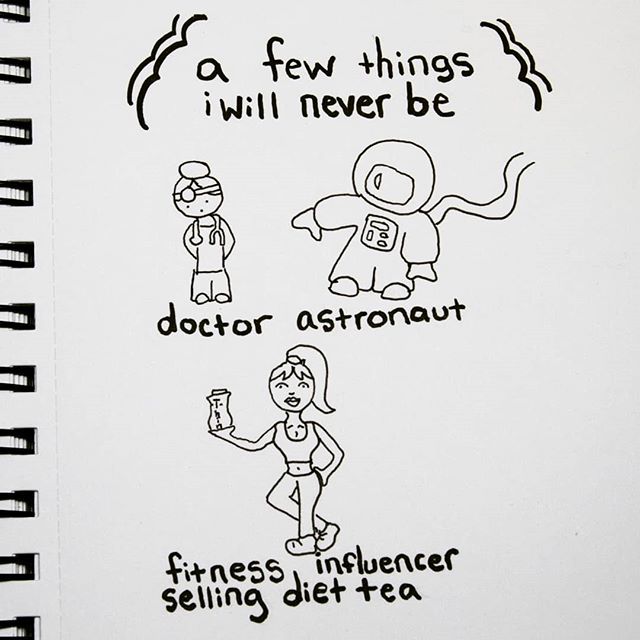 a few things
i will never be
doctor astronaut
fitness influencer
selling diet tea